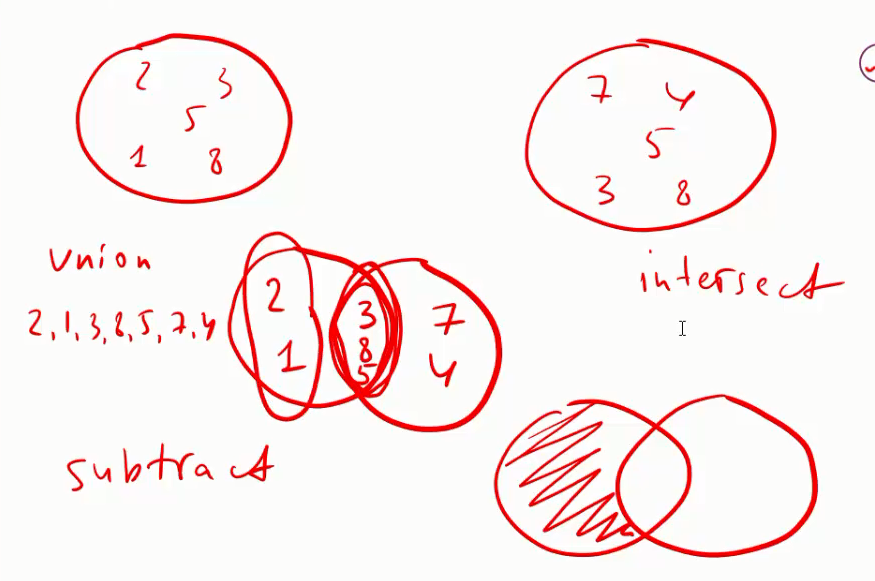 2 3
5
1 8
7 4
5
3 8
Union
2,1,3,8,5,7,4
2
1
3
8
5
7
4
intersect
subtract